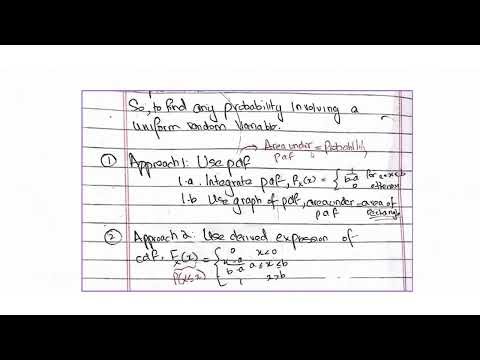 So, to find any probability involving a
uniform random variable.
→ Area under = Probability
pdf
① Approach 1: Use pdf
1.a. Integrate pdf, fx(x) = { 1/b-a for a<x<b
0 otherwise
1.b Use graph of pdf, area under = area of
pdf rectangle
② Approach 2: Use derived expression of
cdf. Fx(x) = { 0 x<0
x-a/b-a a≤x≤b
P(X≤x) 1 x>b